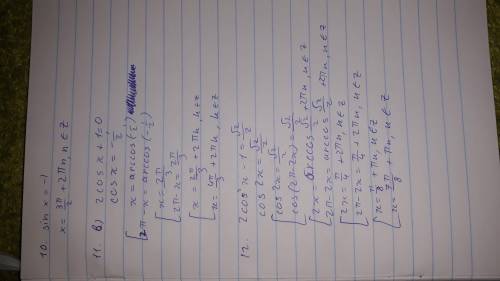 10. sin x = -1
x = 3π/2 + 2πn, n∈Z
11. в) 2cos x + 1 = 0
cos x = -1/2
[ x = arccos(-1/2)
[ 2π - x = arccos(-1/2)
[ x = 2π/3
[ 2π - x = 2π/3
[ x = 2π/3 + 2πn, n∈Z
[ x = 4π/3 + 2πn, n∈Z
12. 2cos²x - 1 = √2/2
cos 2x = √2/2
[ cos 2x = √2/2
[ cos(2π - 2x) = √2/2
[ 2x = arccos √2/2 + 2πn, n∈Z
[ 2π - 2x = arccos √2/2 + 2πn, n∈Z
[ 2x = π/4 + 2πn, n∈Z
[ 2π - 2x = π/4 + 2πn, n∈Z
[ x = π/8 + πn, n∈Z
[ x = 7π/8 + πn, n∈Z